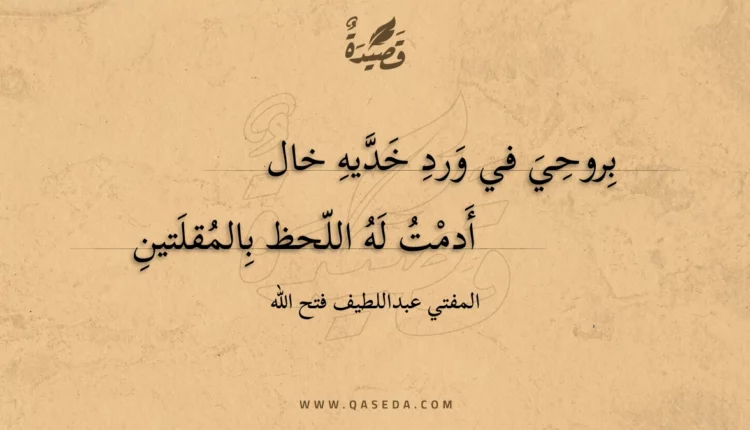 قَصِيْدَةٌ
بِروحِيَ في وَردِ خَدَّيهِ خال
أَدمْتُ لَهُ اللّحظ بِالمُقلَتينِ
المفتي عبداللطيف فتح الله
WWW.QASEDA.COM